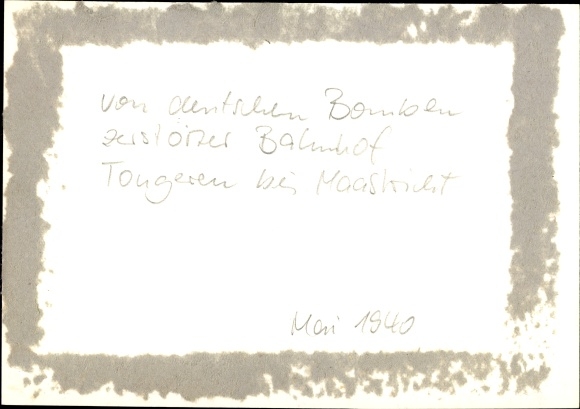 von deutschen Bomben
zerstörter Bahnhof
Tongeren bei Maastricht
Mai 1940